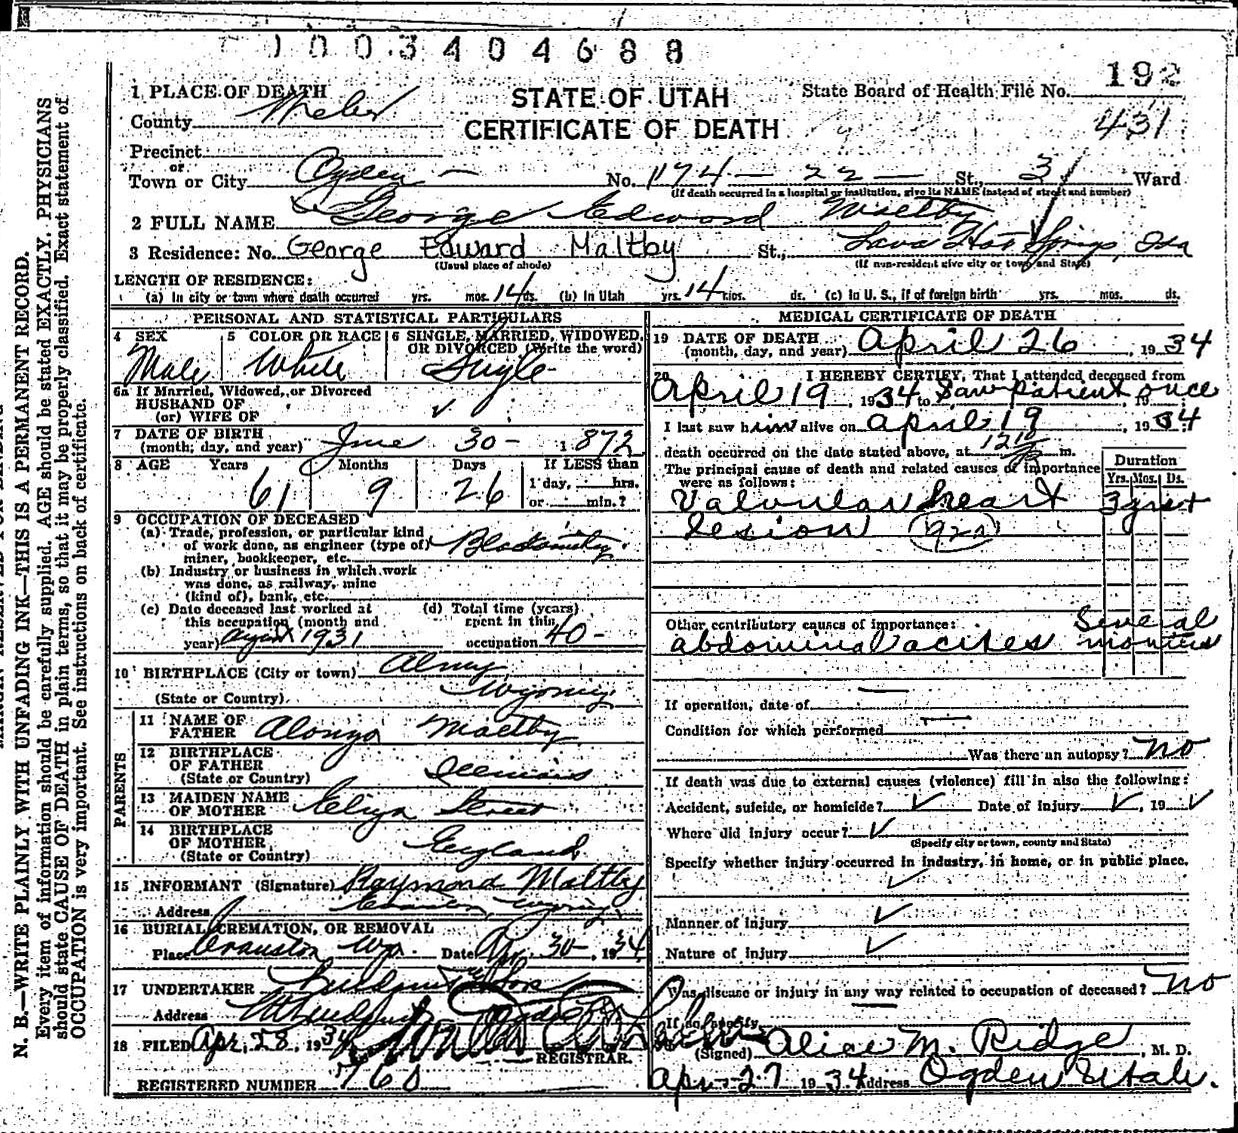 1003404688
192
1 PLACE OF DEATH
STATE OF UTAH
State Board of Health File No.
County Weber
CERTIFICATE OF DEATH
431
Precinct
or
Town or City Ogden No. 174 - 22 - St., 3 Ward
(If death occurred in a hospital or institution, give its NAME instead of street and number)
2 FULL NAME George Edward Maltby
3 Residence: No. George Edward Maltby St., Lava Hot Springs, Ida
(Usual place of abode) (If non-resident give city or town and State)
LENGTH OF RESIDENCE:
(a) In city or town where death occurred yrs. mos. 14 ds. (b) In Utah yrs. 14 mos. ds. (c) In U. S., if of foreign birth yrs. mos. ds.
PERSONAL AND STATISTICAL PARTICULARS
4 SEX 5 COLOR OR RACE 6 SINGLE, MARRIED, WIDOWED, OR DIVORCED (Write the word)
Male White Single
6a If Married, Widowed, or Divorced
HUSBAND OF
(or) WIFE OF
7 DATE OF BIRTH
(month, day, and year) June 30 - 1872
8 AGE Years Months Days If LESS than
61 9 26 1 day, hrs.
or min.?
9 OCCUPATION OF DECEASED
(a) Trade, profession, or particular kind
of work done, as engineer (type of) Blacksmith
miner, bookkeeper, etc.
(b) Industry or business in which work
was done, as railway, mine
(kind of), bank, etc.
(c) Date deceased last worked at (d) Total time (years)
this occupation (month and spent in this
year) August 1931 occupation 40-
10 BIRTHPLACE (City or town) Almy
(State or Country) Wyoming
PARENTS
11 NAME OF
FATHER Alonzo Maltby
12 BIRTHPLACE
OF FATHER
(State or Country) Illinois
13 MAIDEN NAME
OF MOTHER Eliza Street
14 BIRTHPLACE
OF MOTHER
(State or Country) England
15 INFORMANT (Signature) Raymond Maltby
Address Wyoming
16 BURIAL, CREMATION, OR REMOVAL
Place Evanston Wyo. Date Ap. 30 - , 1934
17 UNDERTAKER
Address
18 FILED Apr. 28, 1934
REGISTRAR.
REGISTERED NUMBER 760
MEDICAL CERTIFICATE OF DEATH
19 DATE OF DEATH
(month, day, and year) April 26 , 1934
20 I HEREBY CERTIFY, That I attended deceased from
April 19 1934 to Saw patient once, 19
I last saw him alive on April 19 , 1934
death occurred on the date stated above, at 12 10 m.
The principal cause of death and related causes of importance
were as follows:
Duration
Yrs. Mos. Ds.
Valvular heart 3 yrs +
lesion (92a)
Other contributory causes of importance: Several
abdominal acites months
If operation, date of
Condition for which performed
Was there an autopsy? No
If death was due to external causes (violence) fill in also the following:
Accident, suicide, or homicide? Date of injury , 19
Where did injury occur?
(Specify city or town, county and State)
Specify whether injury occurred in industry, in home, or in public place.
Manner of injury
Nature of injury
Was disease or injury in any way related to occupation of deceased? No
If so, specify
(Signed) Alice M. Ridge , M. D.
Apr - 27 1934 Address Ogden Utah.
N. B.—WRITE PLAINLY WITH UNFADING INK—THIS IS A PERMANENT RECORD.
Every item of information should be carefully supplied. AGE should be stated EXACTLY. PHYSICIANS
should state CAUSE OF DEATH in plain terms, so that it may be properly classified. Exact statement of
OCCUPATION is very important. See instructions on back of certificate.